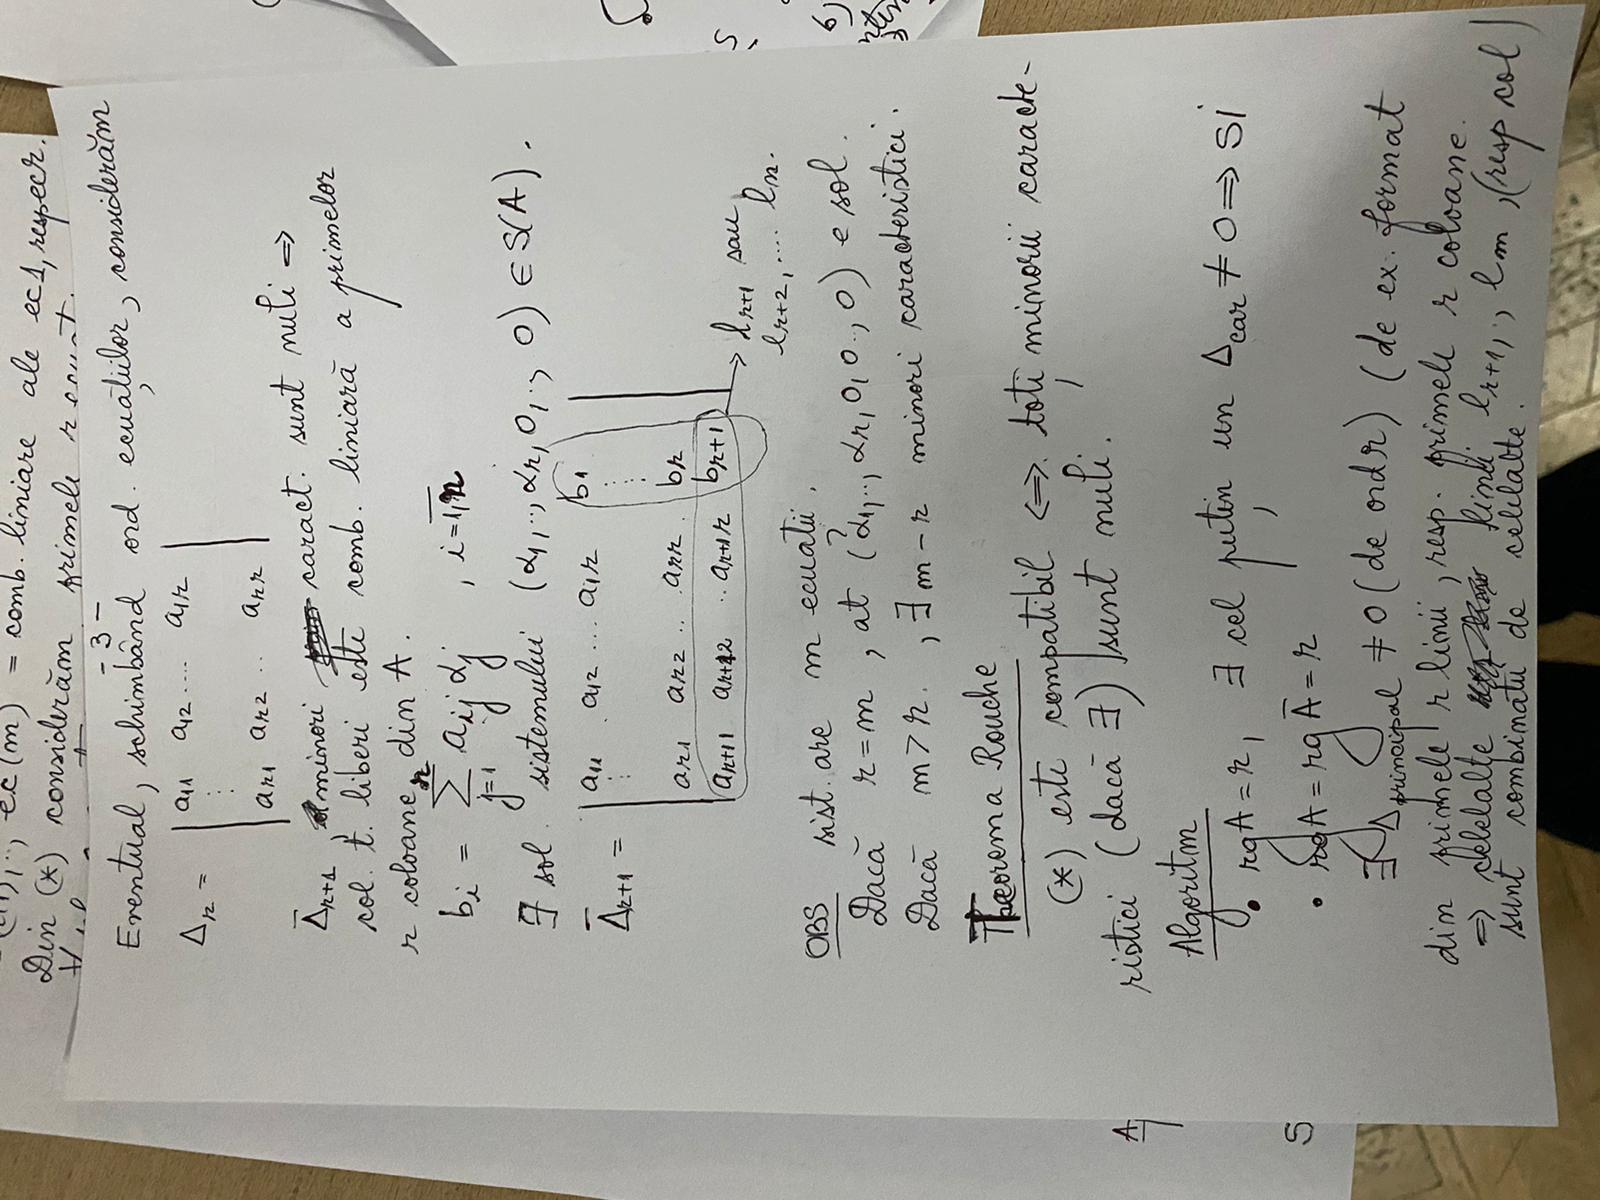 ec(m) = comb. liniare ale ec1, respectiv
Din (*) considerăm primele r ecuat.
- 3 -
Eventual, schimbând ord. ecuațiilor, considerăm
Δr = | a11 a12 .... a1r |
⋮
ar1 ar2 .. arr
Δ̄r+1, minori caract. sunt nuli ⇒
col. t. liberi este comb. liniară a primelor
r coloane din A.
bi = Σ_{j=1}^{r} aij αj , i = 1,r
∃ sol. sistemului (α1,.., αr, 0,.., 0) ∈ S(A).
Δ̄r+1 = | a11 a12 ... a1r b1 |
⋮ ⋮
ar1 ar2 .. arr br
ar+11 ar+12 .. ar+1r br+1 → lr+1 sau
lr+2, .... ln.
OBS sist. are m ecuatii.
Dacă r = m, at (?α1,.., αr, 0, 0.., 0) e sol.
Dacă m > r. , ∃ m - r minori caracteristici.
Theorema Rouche
(*) este compatibil ⇔ toți minorii caracte-
ristici (dacă ∃) sunt nuli.
Algoritm
• rgA = r, ∃ cel puțin un Δcar ≠ 0 ⇒ Si
• rgA = rg Ā = r
∃ Δprincipal ≠ 0 (de ord r) (de ex. format
din primele r linii, resp. primele r coloane.
⇒ celelalte linii lr+1,.., lm, (resp col)
sunt combinatii de celelalte.
A
S
S
6)